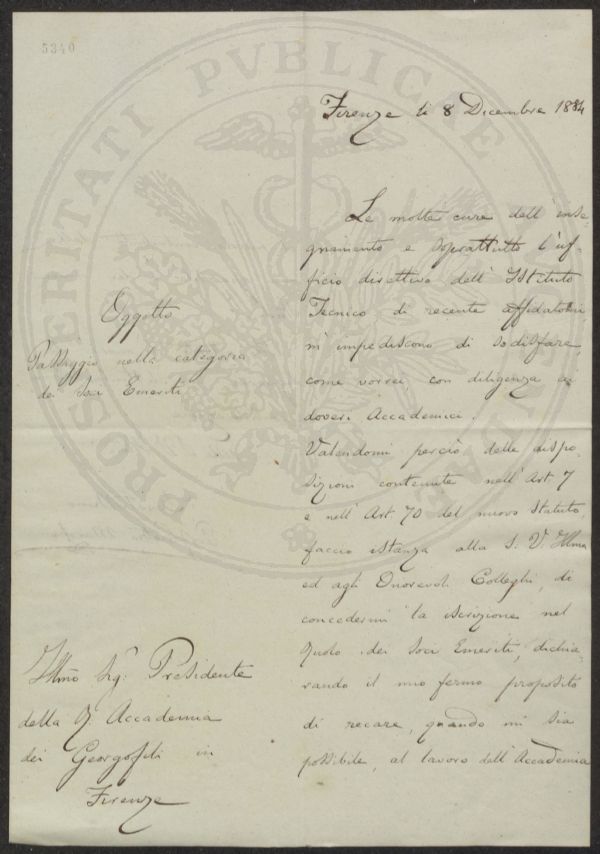 5340
PROSPERITATI PVBLICAE AVGENDAE
Firenze li 8 Dicembre 1884
Oggetto
Passaggio nella categoria
dei Soci Emeriti
Le molte cure dell'inse-
gnamento e soprattutto l'uf-
ficio direttivo dell'Istituto
Tecnico di recente affidatomi,
m'impediscono di sodisfare,
come vorrei, con diligenza ai
doveri Accademici.
Valendomi perciò delle dispo-
sizioni contenute nell'Art 7
e nell'Art. 70 del nuovo Statuto,
faccio istanza alla S. V. Illma
ed agli Onorevoli Colleghi, di
concedermi la iscrizione nel
ruolo dei Soci Emeriti, dichia-
rando il mio fermo proposito
di recare, quando mi sia
possibile, al lavoro dell'Accademia
Illmo Sig. Presidente
della R. Accademia
dei Georgofili in
Firenze